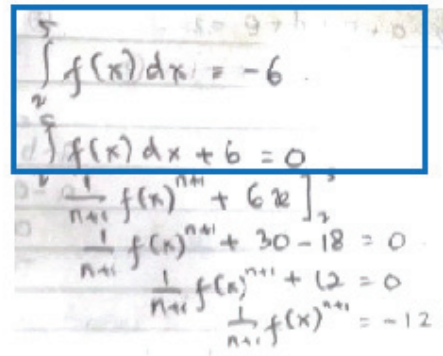 ∫₂⁵ f(x) dx = -6
∫₂⁵ f(x) dx + 6 = 0
1/(n+1) f(x)ⁿ⁺¹ + 6x]₂⁵
1/(n+1) f(x)ⁿ⁺¹ + 30 - 18 = 0
1/(n+1) f(x)ⁿ⁺¹ + 12 = 0
1/(n+1) f(x)ⁿ⁺¹ = -12